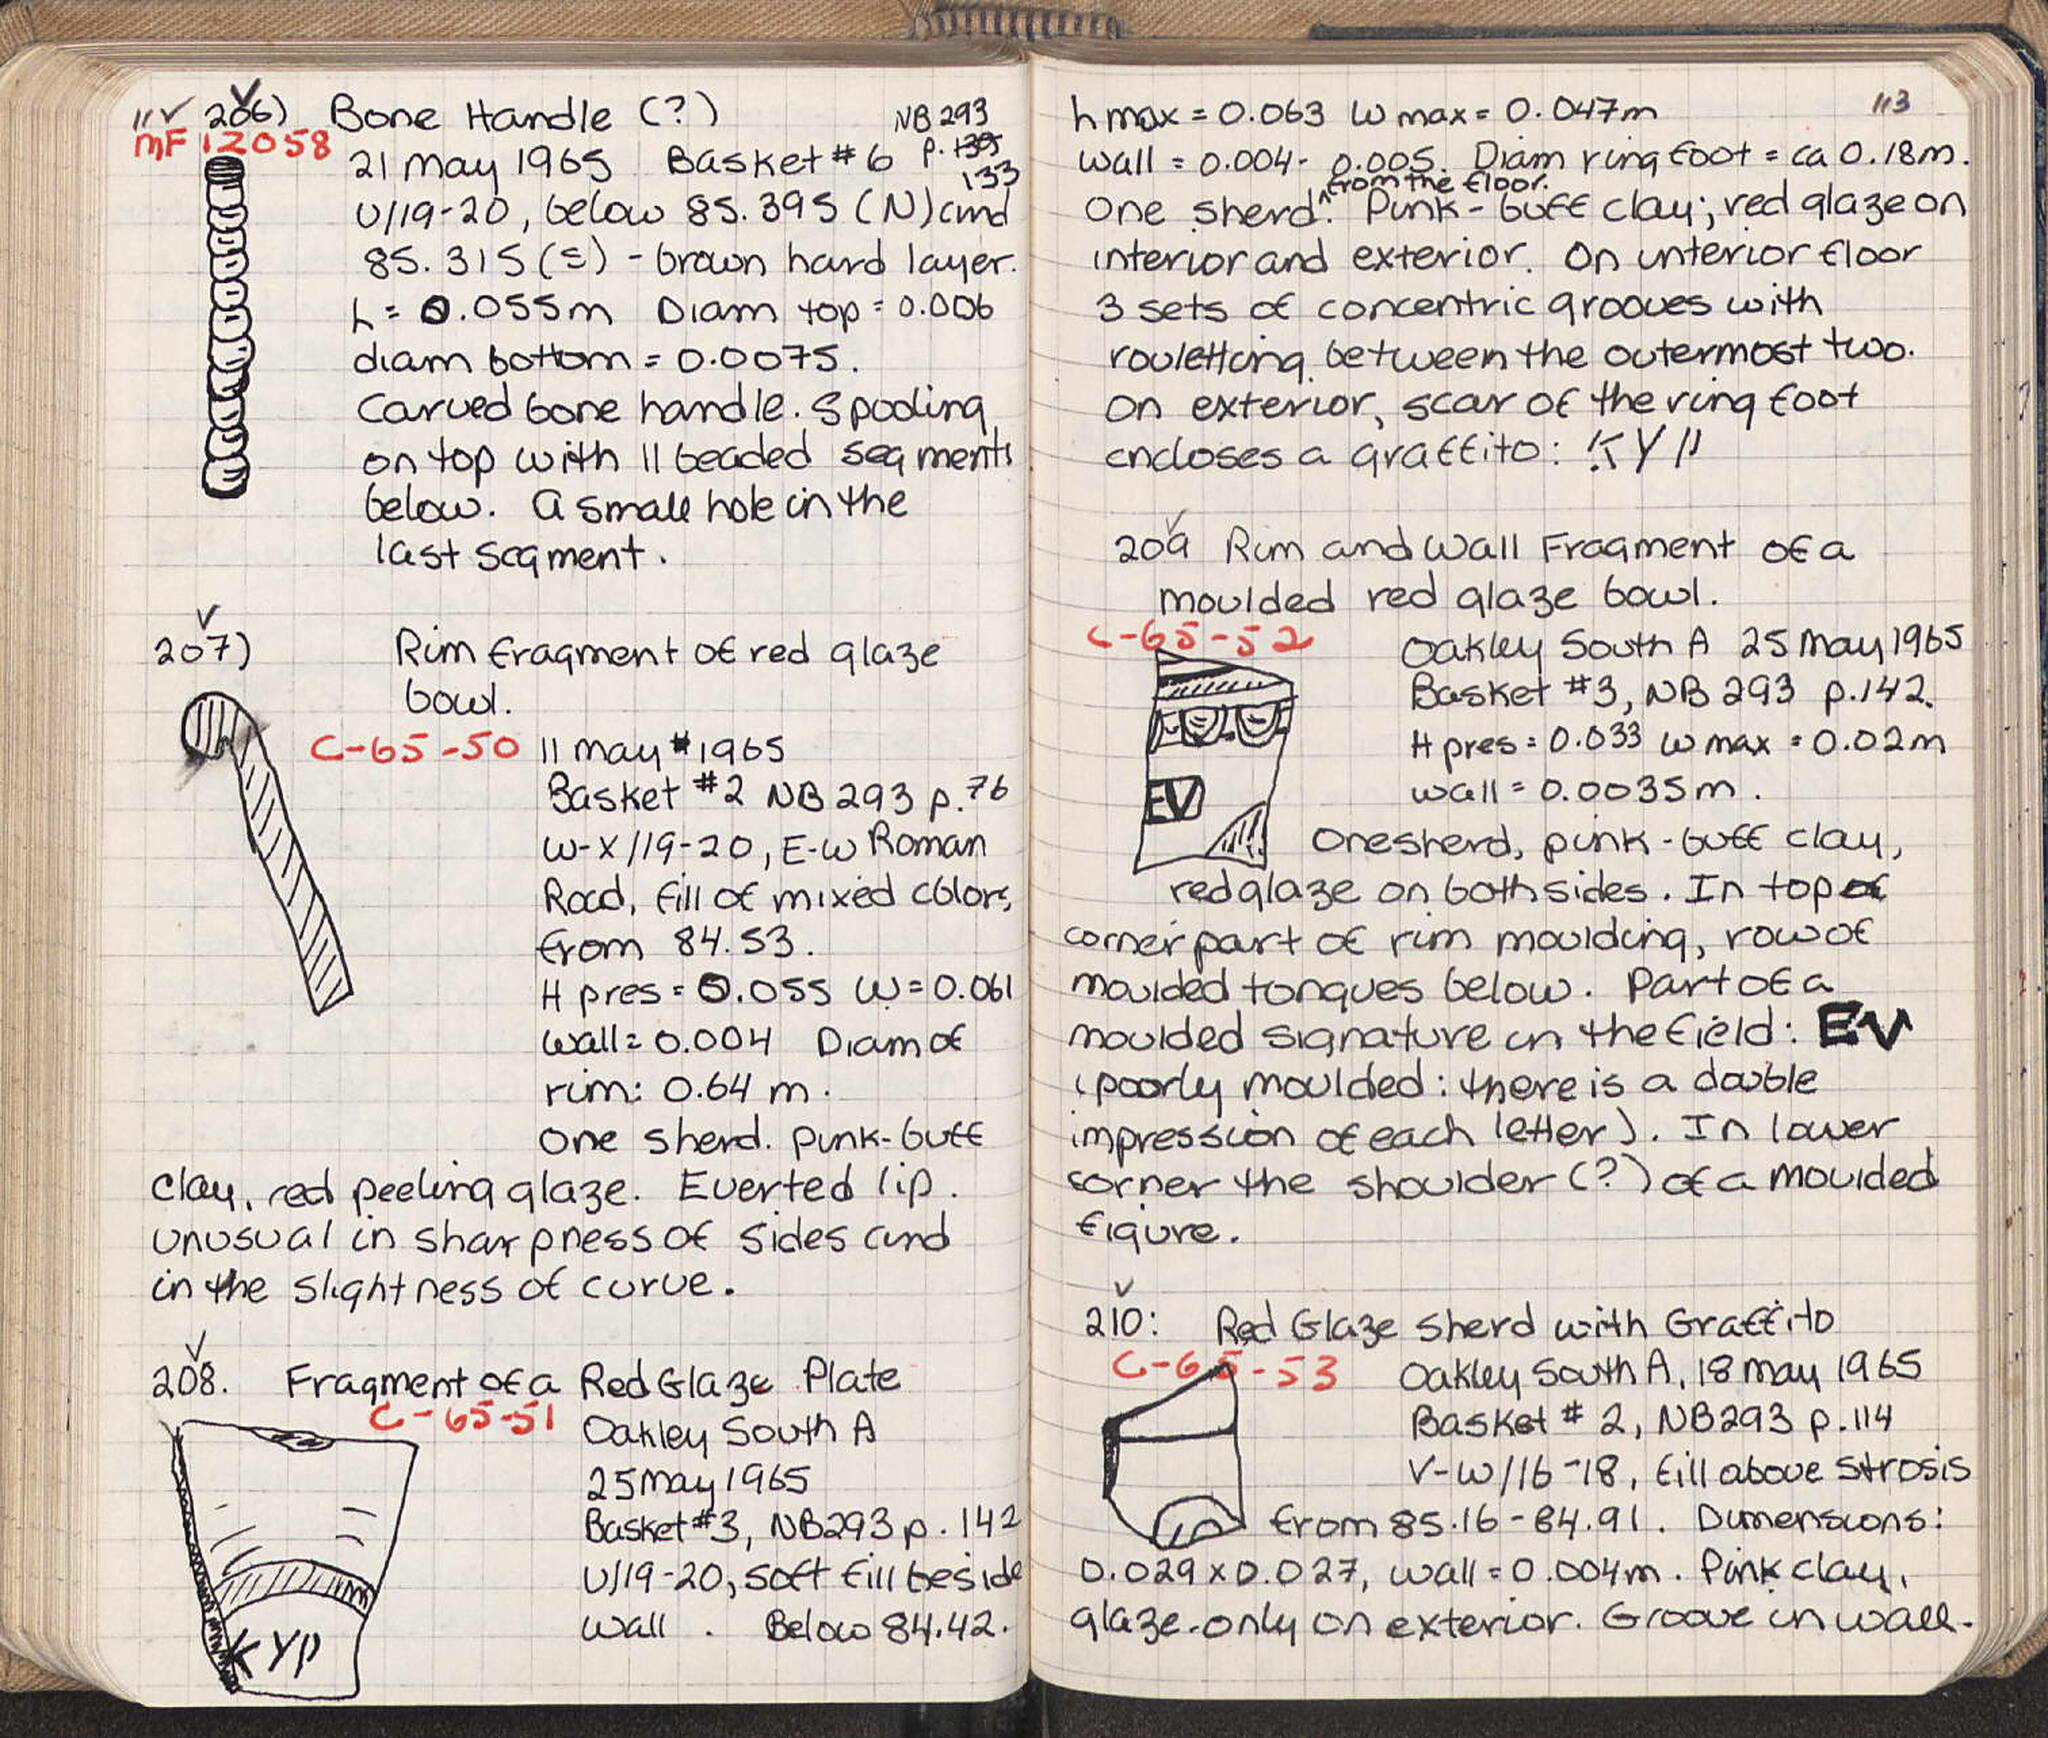 11 ✓ 206) Bone Handle (?) NB 293
MF 12058 p. 135
21 May 1965 Basket # 6 133
U/19-20, below 85.395 (N) and
85.315 (S) - brown hard layer.
L = 0.055m Diam top = 0.006
diam bottom = 0.0075.
Carved bone handle. Spooling
on top with 11 beaded segments
below. A small hole in the
last segment.
207) Rim fragment of red glaze
bowl.
C-65-50 11 May 1965
Basket #2 NB 293 p. 76
W-X/19-20, E-W Roman
Road, fill of mixed colors,
from 84.53.
H pres = 0.055 W = 0.061
wall = 0.004 Diam of
rim: 0.64 m.
One sherd. Pink-buff
clay, red peeling glaze. Everted lip.
unusual in sharpness of sides and
in the slightness of curve.
208. Fragment of a Red Glaze Plate
C-65-51 Oakley South A
25 May 1965
Basket #3, NB 293 p. 142
U/19-20, soft fill beside
wall. Below 84.42.
KYP
113
h max = 0.063 W max = 0.047m
wall = 0.004-0.005. Diam ring foot = ca 0.18m.
One sherd ^from the floor. Pink-buff clay; red glaze on
interior and exterior. On interior floor
3 sets of concentric grooves with
rouletting between the outermost two.
On exterior, scar of the ring foot
encloses a graffito: KYP
209 Rim and Wall Fragment of a
moulded red glaze bowl.
C-65-52 Oakley South A 25 May 1965
Basket #3, NB 293 p.142.
H pres = 0.033 W max = 0.02m
EV wall = 0.0035m.
One sherd, pink-buff clay,
red glaze on both sides. In top of
corner part of rim moulding, row of
moulded tongues below. Part of a
moulded signature in the field: EV
(poorly moulded: there is a double
impression of each letter). In lower
corner the shoulder (?) of a moulded
figure.
210: Red Glaze Sherd with Graffito
C-65-53 Oakley South A, 18 May 1965
Basket # 2, NB 293 p.114
V-W/16-18, fill above strosis
from 85.16-84.91. Dimensions:
0.029 x 0.027, wall = 0.004m. Pink clay,
glaze only on exterior. Groove in wall.